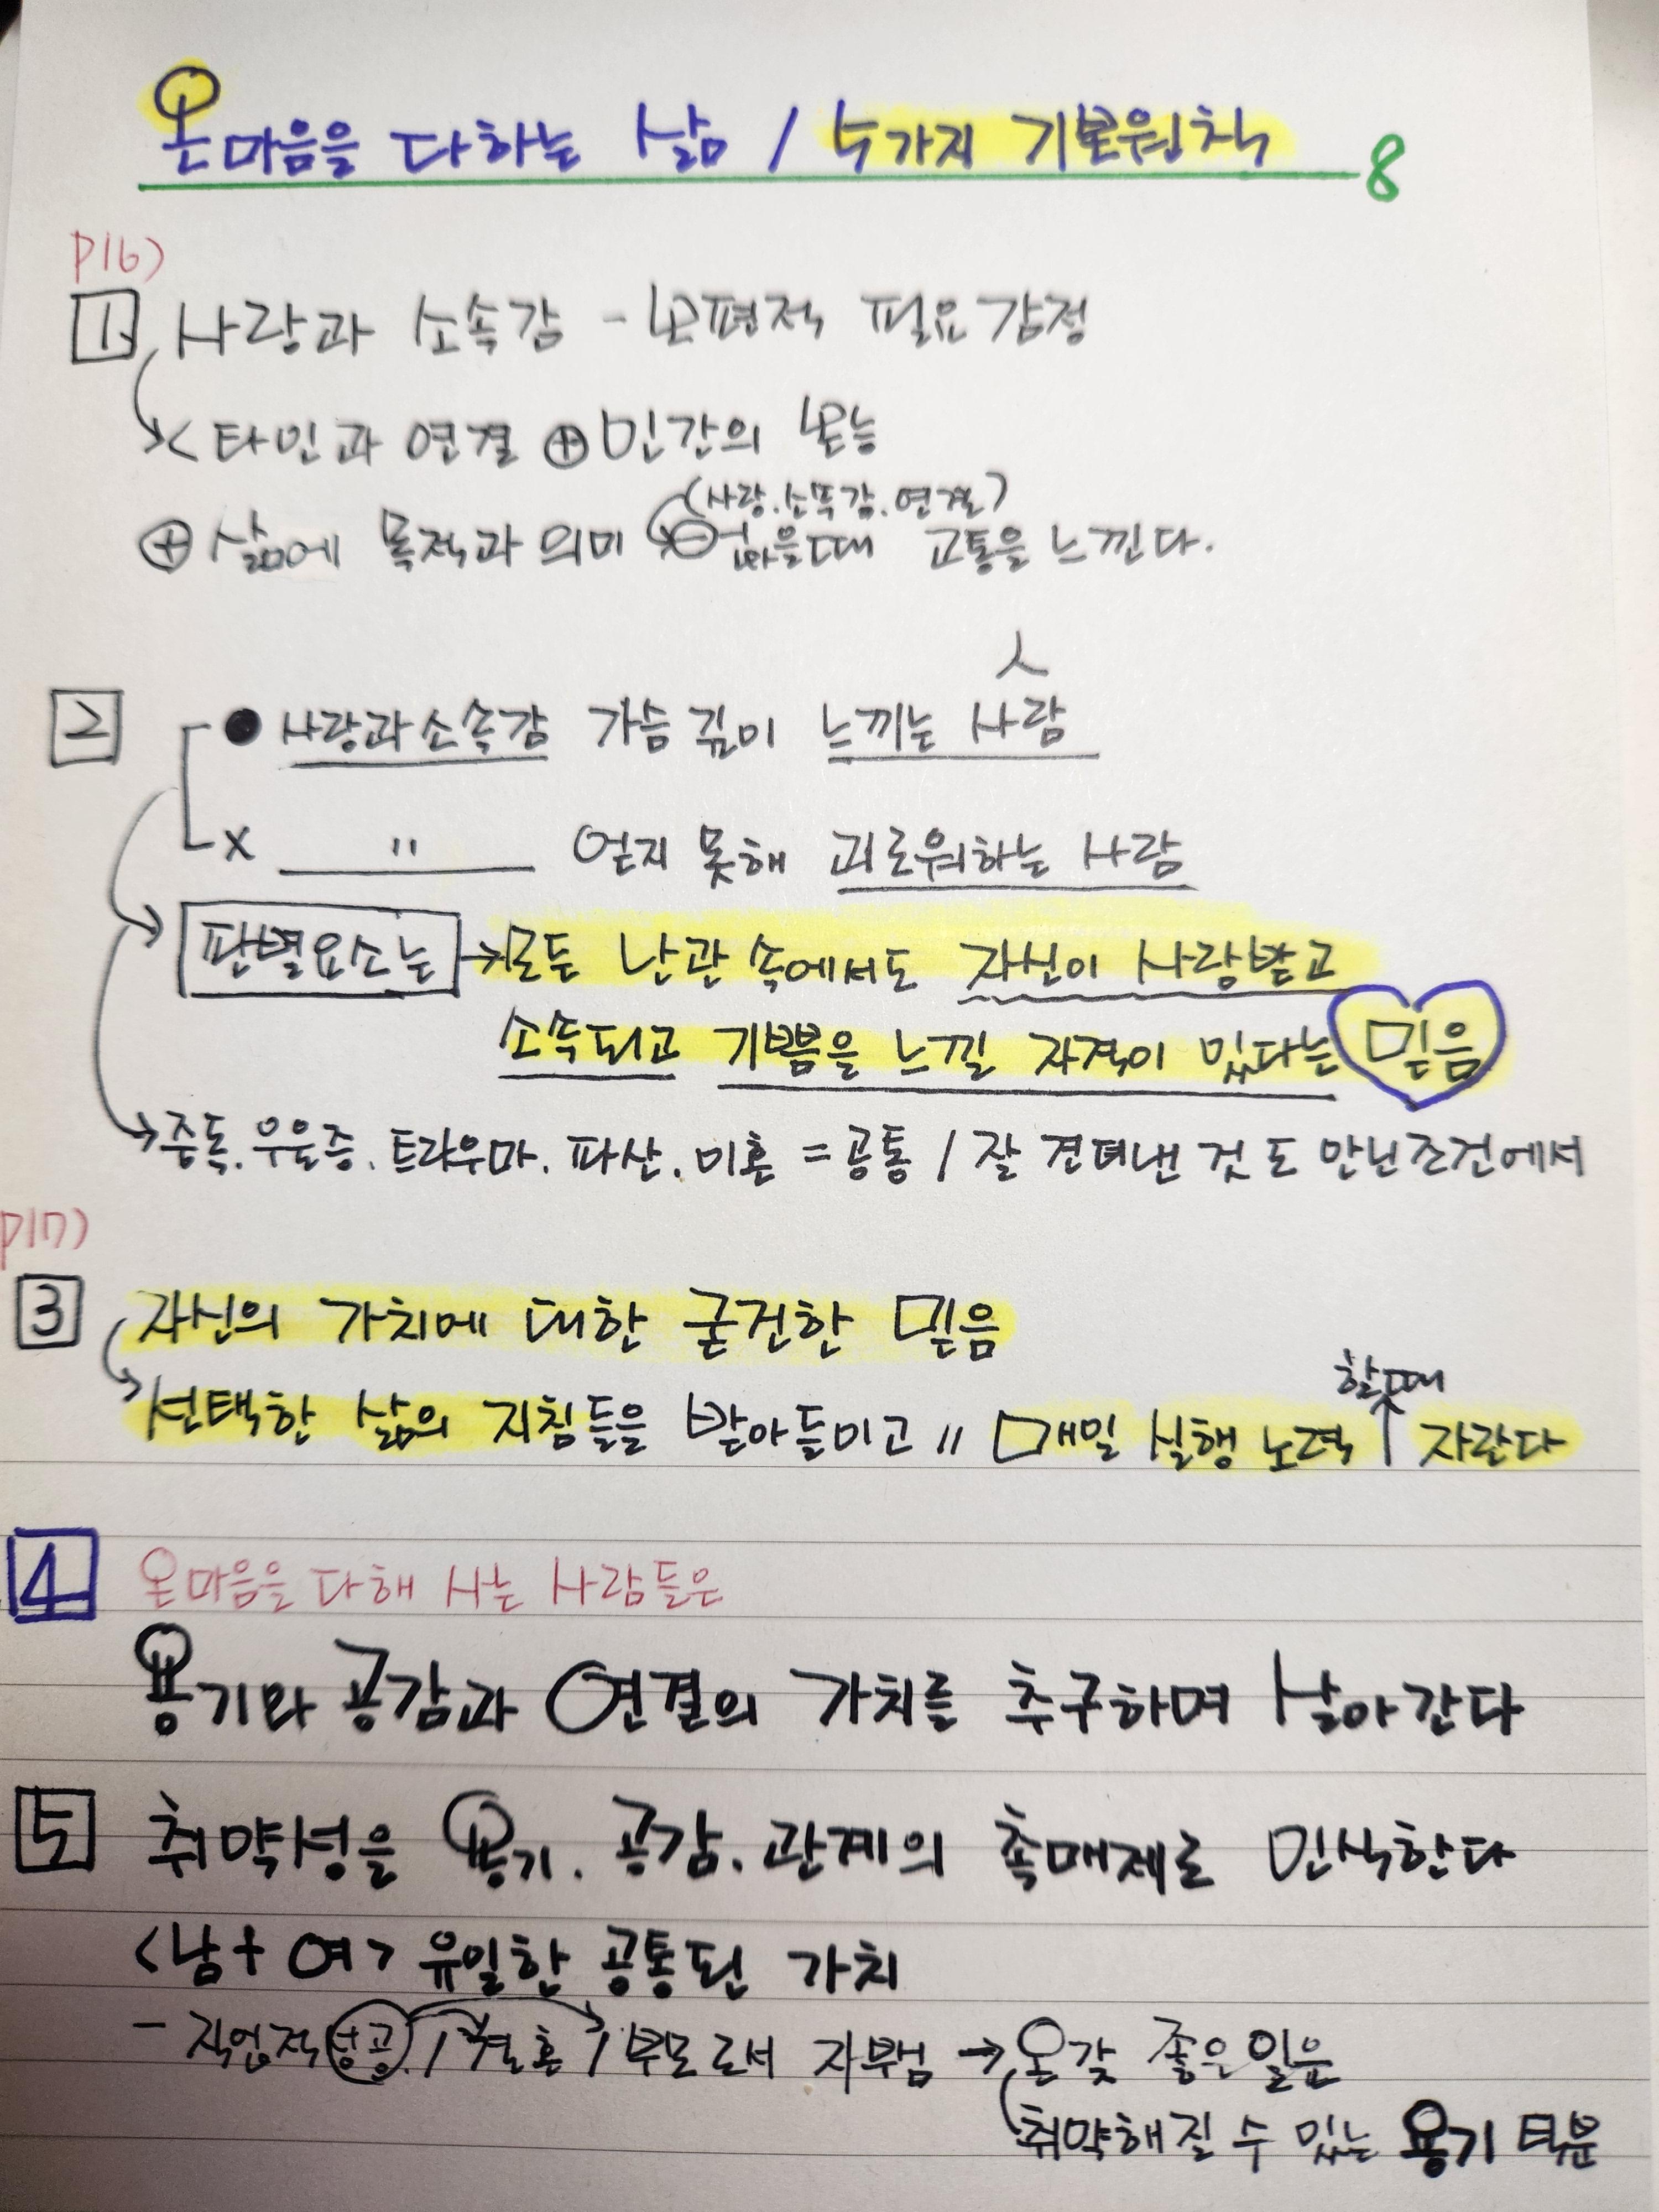 온마음을 다하는 삶 / 5가지 기본원칙 8
P16)
1. 사랑과 소속감 - 보편적 필요감정
< 타인과 연결 ⊕ 인간의 본능
(사랑.소속감.연결)
⊕ 삶에 목적과 의미 ⊖ 없을때 고통을 느낀다.
人
2 ● 사랑과소속감 가슴 깊이 느끼는 사람
x 〃 얻지 못해 괴로워하는 사람
판별요소는 → 모든 난관 속에서도 자신이 사랑받고
소속되고 기쁨을 느낄 자격이 있다는 믿음
→ 중독.우울증.트라우마.파산.이혼 = 공통 / 잘 견뎌낸 것도 안닌조건에서
P17)
3 자신의 가치에 대한 굳건한 믿음
할때
선택한 삶의 지침들을 받아들이고 〃 매일 실행 노력 ↑ 자란다
4 온마음을 다해 사는 사람들은
용기와 공감과 연결의 가치를 추구하며 살아간다
5 취약성을 용기. 공감. 관계의 촉매제로 인식한다
<남+여> 유일한 공통된 가치
- 직업적 성공 / 결혼 / 부모로서 자부심 → 온갖 좋은일은
취약해질 수 있는 용기 덕분